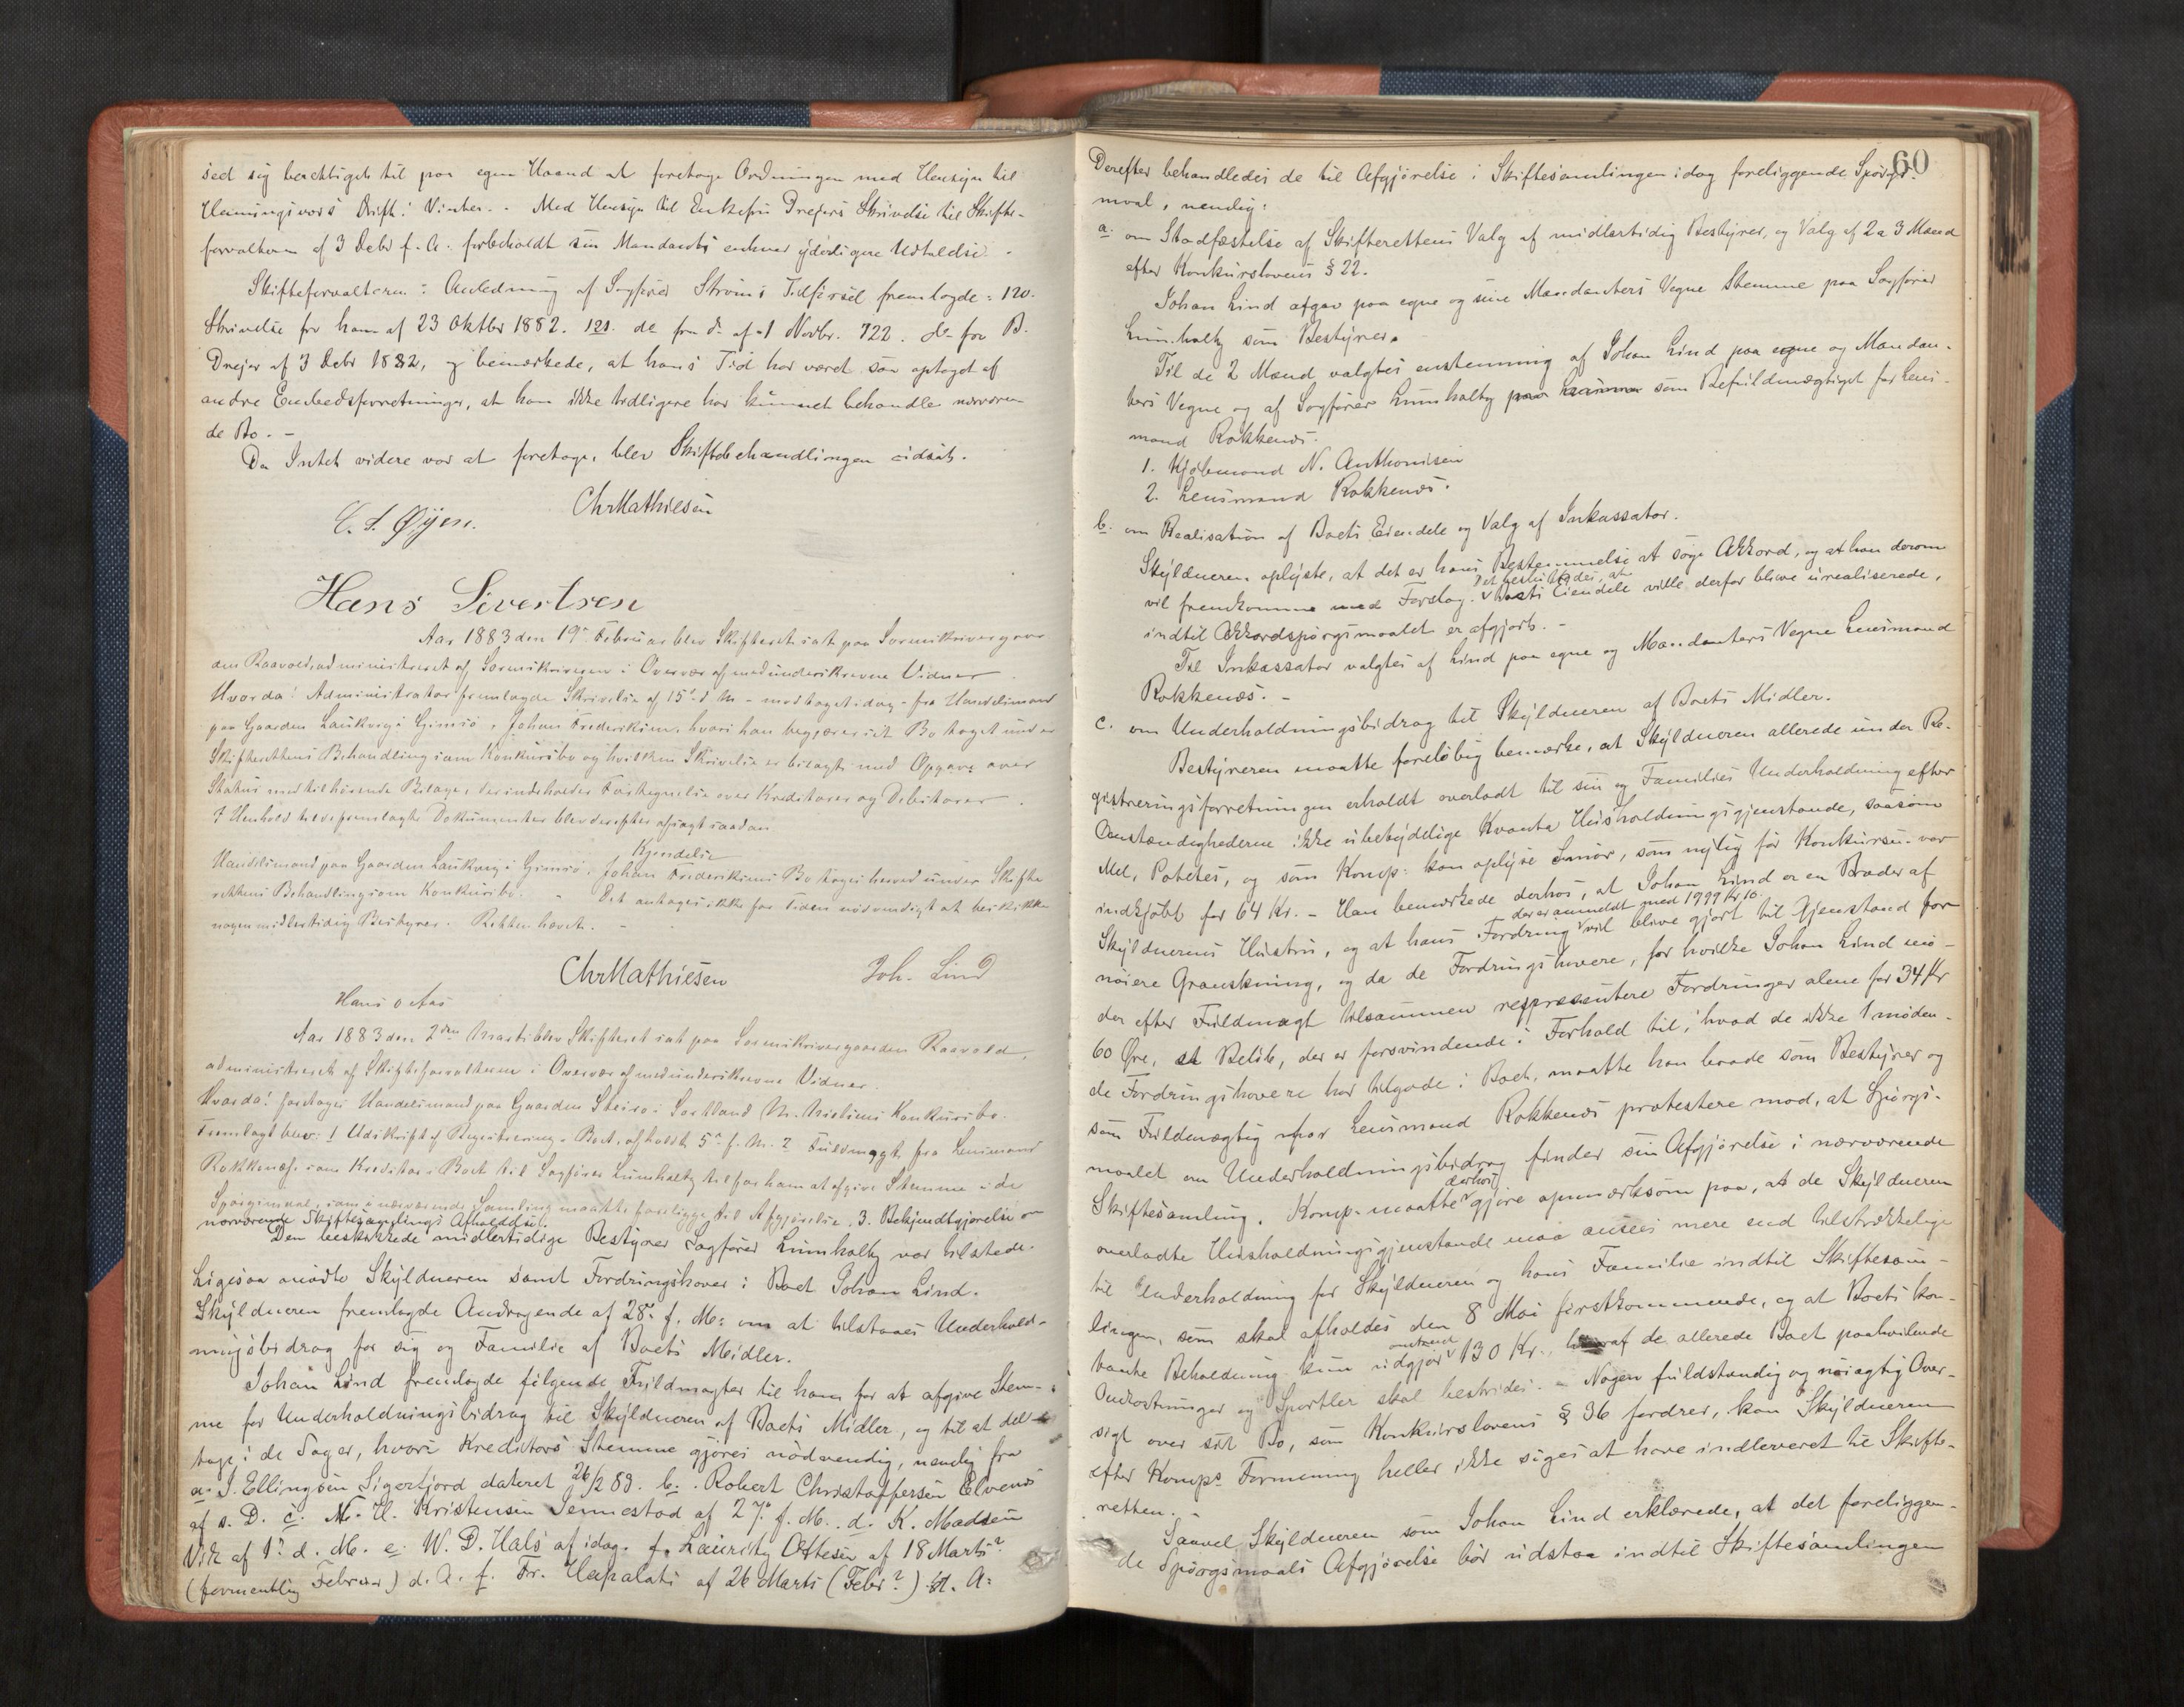 sed sig berettiget til paa egen Haand at foretage Ordningen med Hensyn til
Henningsværs Drift i Vinter. - Med Hensyn til Enkefru Drejers Skrivelse til Skifte-
forvalteren af 3 Debr f. A. forbeholdt sin Mandants enhver yderligere Udtalelse. -
Skifteforvalteren i Anledning af Sagfører Strøms Tilførsel fremlagde: 120.
Skrivelse fra ham af 23 Oktbr 1882. 121. do fra do af 1 Novbr. 122. do fra B.
Drejer af 3 Debr 1882, og bemærkede, at hans Tid har været saa optaget af
andre Embedsforretninger, at han ikke tidligere har kunnet behandle nærværen-
de Bo. -
Da Intet videre var at foretage, blev Skiftebehandlingen udsat.
ChrMathiesen
C. S. Øyen.
Hans Sivertsen
Aar 1883 den 19de Februar blev Skifteret sat paa Sorenskrivergaar-
den Raavold, administreret af Sorenskriveren i Overvær af medunderskrevne Vidner
Hvorda: Administrator fremlagde Skrivelse af 15de d. M. - modtaget idag - fra Handelsmand
paa Gaarden Laukvig i Gimsø, Johan Frederiksen, hvori han begjærer sit Bo taget under
Skifterettens Behandling som Konkursbo og hvilken Skrivelse er bilagt med Opgave over
Status med tilhørende Bilage, der indeholder Fortegnelse over Kreditorer og Debitorer.
I Henhold til de fremlagte Dokumenter blev derefter afsagt saadan
Kjendelse
Handelsmand paa Gaarden Laukvig i Gimsø, Johan Frederiksens Bo tages herved under Skifte-
rettens Behandling som Konkursbo. - Det antages ikke for Tiden nødvendigt at beskikke
nogen midlertidig Bestyrer. Retten hævet. -
ChrMathiesen Joh. Lind
Hans o Aas
Aar 1883 den 2den Marts blev Skifteret sat paa Sorenskrivergaarden Raavold,
administreret af Skifteforvalteren i Overvær af medunderskrevne Vidner.
Hvorda: foretages Handelsmand paa Gaarden Steiro i Sortland M. Nielsens Konkursbo.
Fremlagt blev: 1 Udskrift af Registrering i Boet, afholdt 5te f. M. 2 Fuldmagt fra Lensmand
Rokkenæs som Kreditor i Boet til Sagfører Lumholtz til for ham at afgive Stemme i de
Spørgsmaal, som i nærværende Samling maatte foreligge til Afgjørelse. 3. Bekjendtgjørelse om
nærværende Skiftesamlings Afholdelse.
Den beskikkede midlertidige Bestyrer Sagfører Lumholtz var tilstede.
Ligesaa mødte Skyldneren samt Fordringshaver i Boet Johan Lind.
Skyldneren fremlagde Andragende af 28de f. M. om at tilstaaes Underhold-
ningsbidrag for sig og Familie af Boets Midler.
Johan Lind fremlagde følgende Fuldmagter til ham for at afgive Stem-
me for Underholdningsbidrag til Skyldneren af Boets Midler, og til at del-
tage i de Sager, hvori Kreditors Stemme gjøres nødvendig, nemlig fra
a. J. Ellingsen Sigerfjord dateret 26/2 83. b. Robert Christoffersen Elvenes
af s. D. c. N. H. Kristensen Jennestad af 27de f. M. d. K. Madsen
Vik af 1ste d. M. e. W. D. Hals af idag. f. Lauritz Ottesen af 18 Marts
(formentlig Februar) d. A. f. Fr. af 26 Marts (Febr?) d. A.
60
Derefter behandledes de til Afgjørelse i Skiftesamlingen idag foreliggende Spørgs-
maal, nemlig:
a. om Stadfæstelse af Skifterettens Valg af midlertidig Bestyrer, og Valg af 2 a 3 Mænd
efter Konkurslovens § 22.
Johan Lind afgav paa egne og sine Mandanters Vegne Stemme paa Sagfører
Lumholtz som Bestyrer.
Til de 2 Mænd valgtes enstemmig af Johan Lind paa egne og Mandan-
ters Vegne og af Sagfører Lumholtz som Befuldmægtiget for Lens-
mand Rokkenæs.
1. Kjøbmand N. Anthonisen
2. Lensmand Rokkenæs.
b. om Realisation af Boets Eiendele og Valg af Inkassator.
Skyldneren oplyste, at det er hans Bestemmelse at søge Akkord, og at han derom
vil fremkomme med Forslag. Det besluttedes, at Boets Eiendele ville derfor blive urealiserede,
indtil Akkordspørgsmaalet er afgjort. -
Til Inkassator valgtes af Lind paa egne og Mandanters Vegne Lensmand
Rokkenæs. -
c. om Underholdningsbidrag til Skyldneren af Boets Midler.
Bestyreren maatte foreløbig bemærke, at Skyldneren allerede under Re-
gistreringsforretningen erholdt overladt til sin og Families Underholdning efter
Omstændighederne ikke ubetydelige Kvanta Husholdningsgjenstande, saasom
Mel, Potetes, og som Komp: kan oplyse Smør, som nylig før Konkursen var
indkjøbt for 64 Kr. - Han bemærkede derhos, at Johan Lind er en Broder af
Skyldnerens Hustru, og at hans Fordring der er anmeldt med 1999 Kr 10. vil blive gjort til Gjenstand for
nøiere Granskning, og da de Fordringshavere, for hvilke Johan Lind mø-
der efter Fuldmagt tilsammen repræsentere Fordringer alene for 34 Kr
60 Øre, et Beløb, der er forsvindende i Forhold til, hvad de ikke møden-
de Fordringshavere har tilgode i Boet, maatte han baade som Bestyrer og
som Fuldmægtig for Lensmand Rokkenæs protestere mod, at Spørgs-
maalet om Underholdningsbidrag finder sin Afgjørelse i nærværende
Skiftesamling. Komp. maatte derhos gjøre opmærksom paa, at de Skyldneren
overladte Husholdningsgjenstande maa ansees mere end tilstrækkelige
til Underholdning for Skyldneren og hans Familie indtil Skiftesam-
lingen, som skal afholdes den 8 Mai førstkommende, og at Boets kon-
tante Beholdning kun udgjør omtrent 130 Kr., hvoraf de allerede Boet paahvilende
Omkostninger og Sportler skal bestrides. - Nogen fuldstændig og nøiagtig Over-
sigt over sit Bo, som Konkurslovens § 36 fordrer, kan Skyldneren
efter Komps Formening heller ikke siges at have indleveret til Skifte-
retten. -
Saavel Skyldneren som Johan Lind erklærede, at det foreliggen-
de Spørgsmaals Afgjørelse bør udstaa indtil Skiftesamlingen